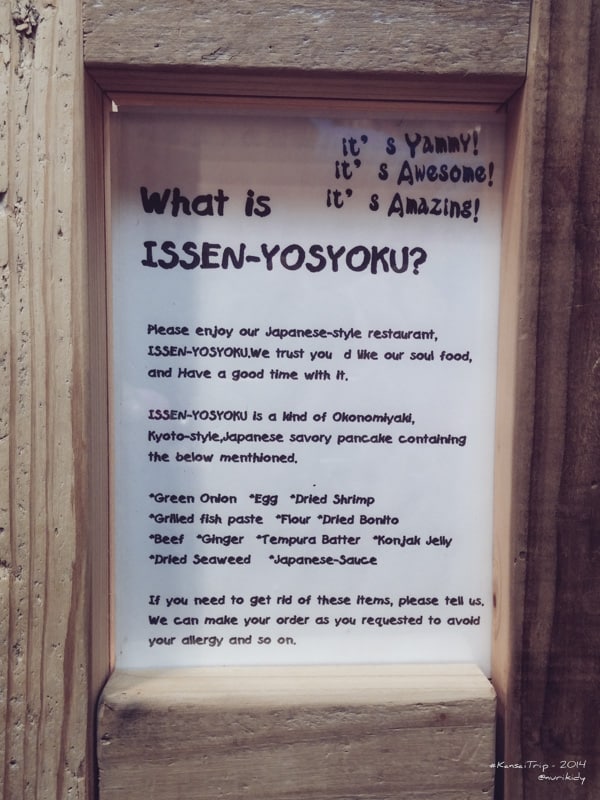 it's Yammy!
it's Awesome!
it's Amazing!
What is
ISSEN-YOSYOKU?
Please enjoy our Japanese-style restaurant,
ISSEN-YOSYOKU.We trust you d like our soul food,
and Have a good time with it.
ISSEN-YOSYOKU is a kind of Okonomiyaki,
Kyoto-style,Japanese savory pancake containing
the below menthioned.
*Green Onion *Egg *Dried Shrimp
*Grilled fish paste *Flour *Dried Bonito
*Beef *Ginger *Tempura Batter *Konjak Jelly
*Dried Seaweed *Japanese-Sauce
If you need to get rid of these items, please tell us.
We can make your order as you requested to avoid
your allergy and so on.
#KansaiTrip - 2014
@nurikidy